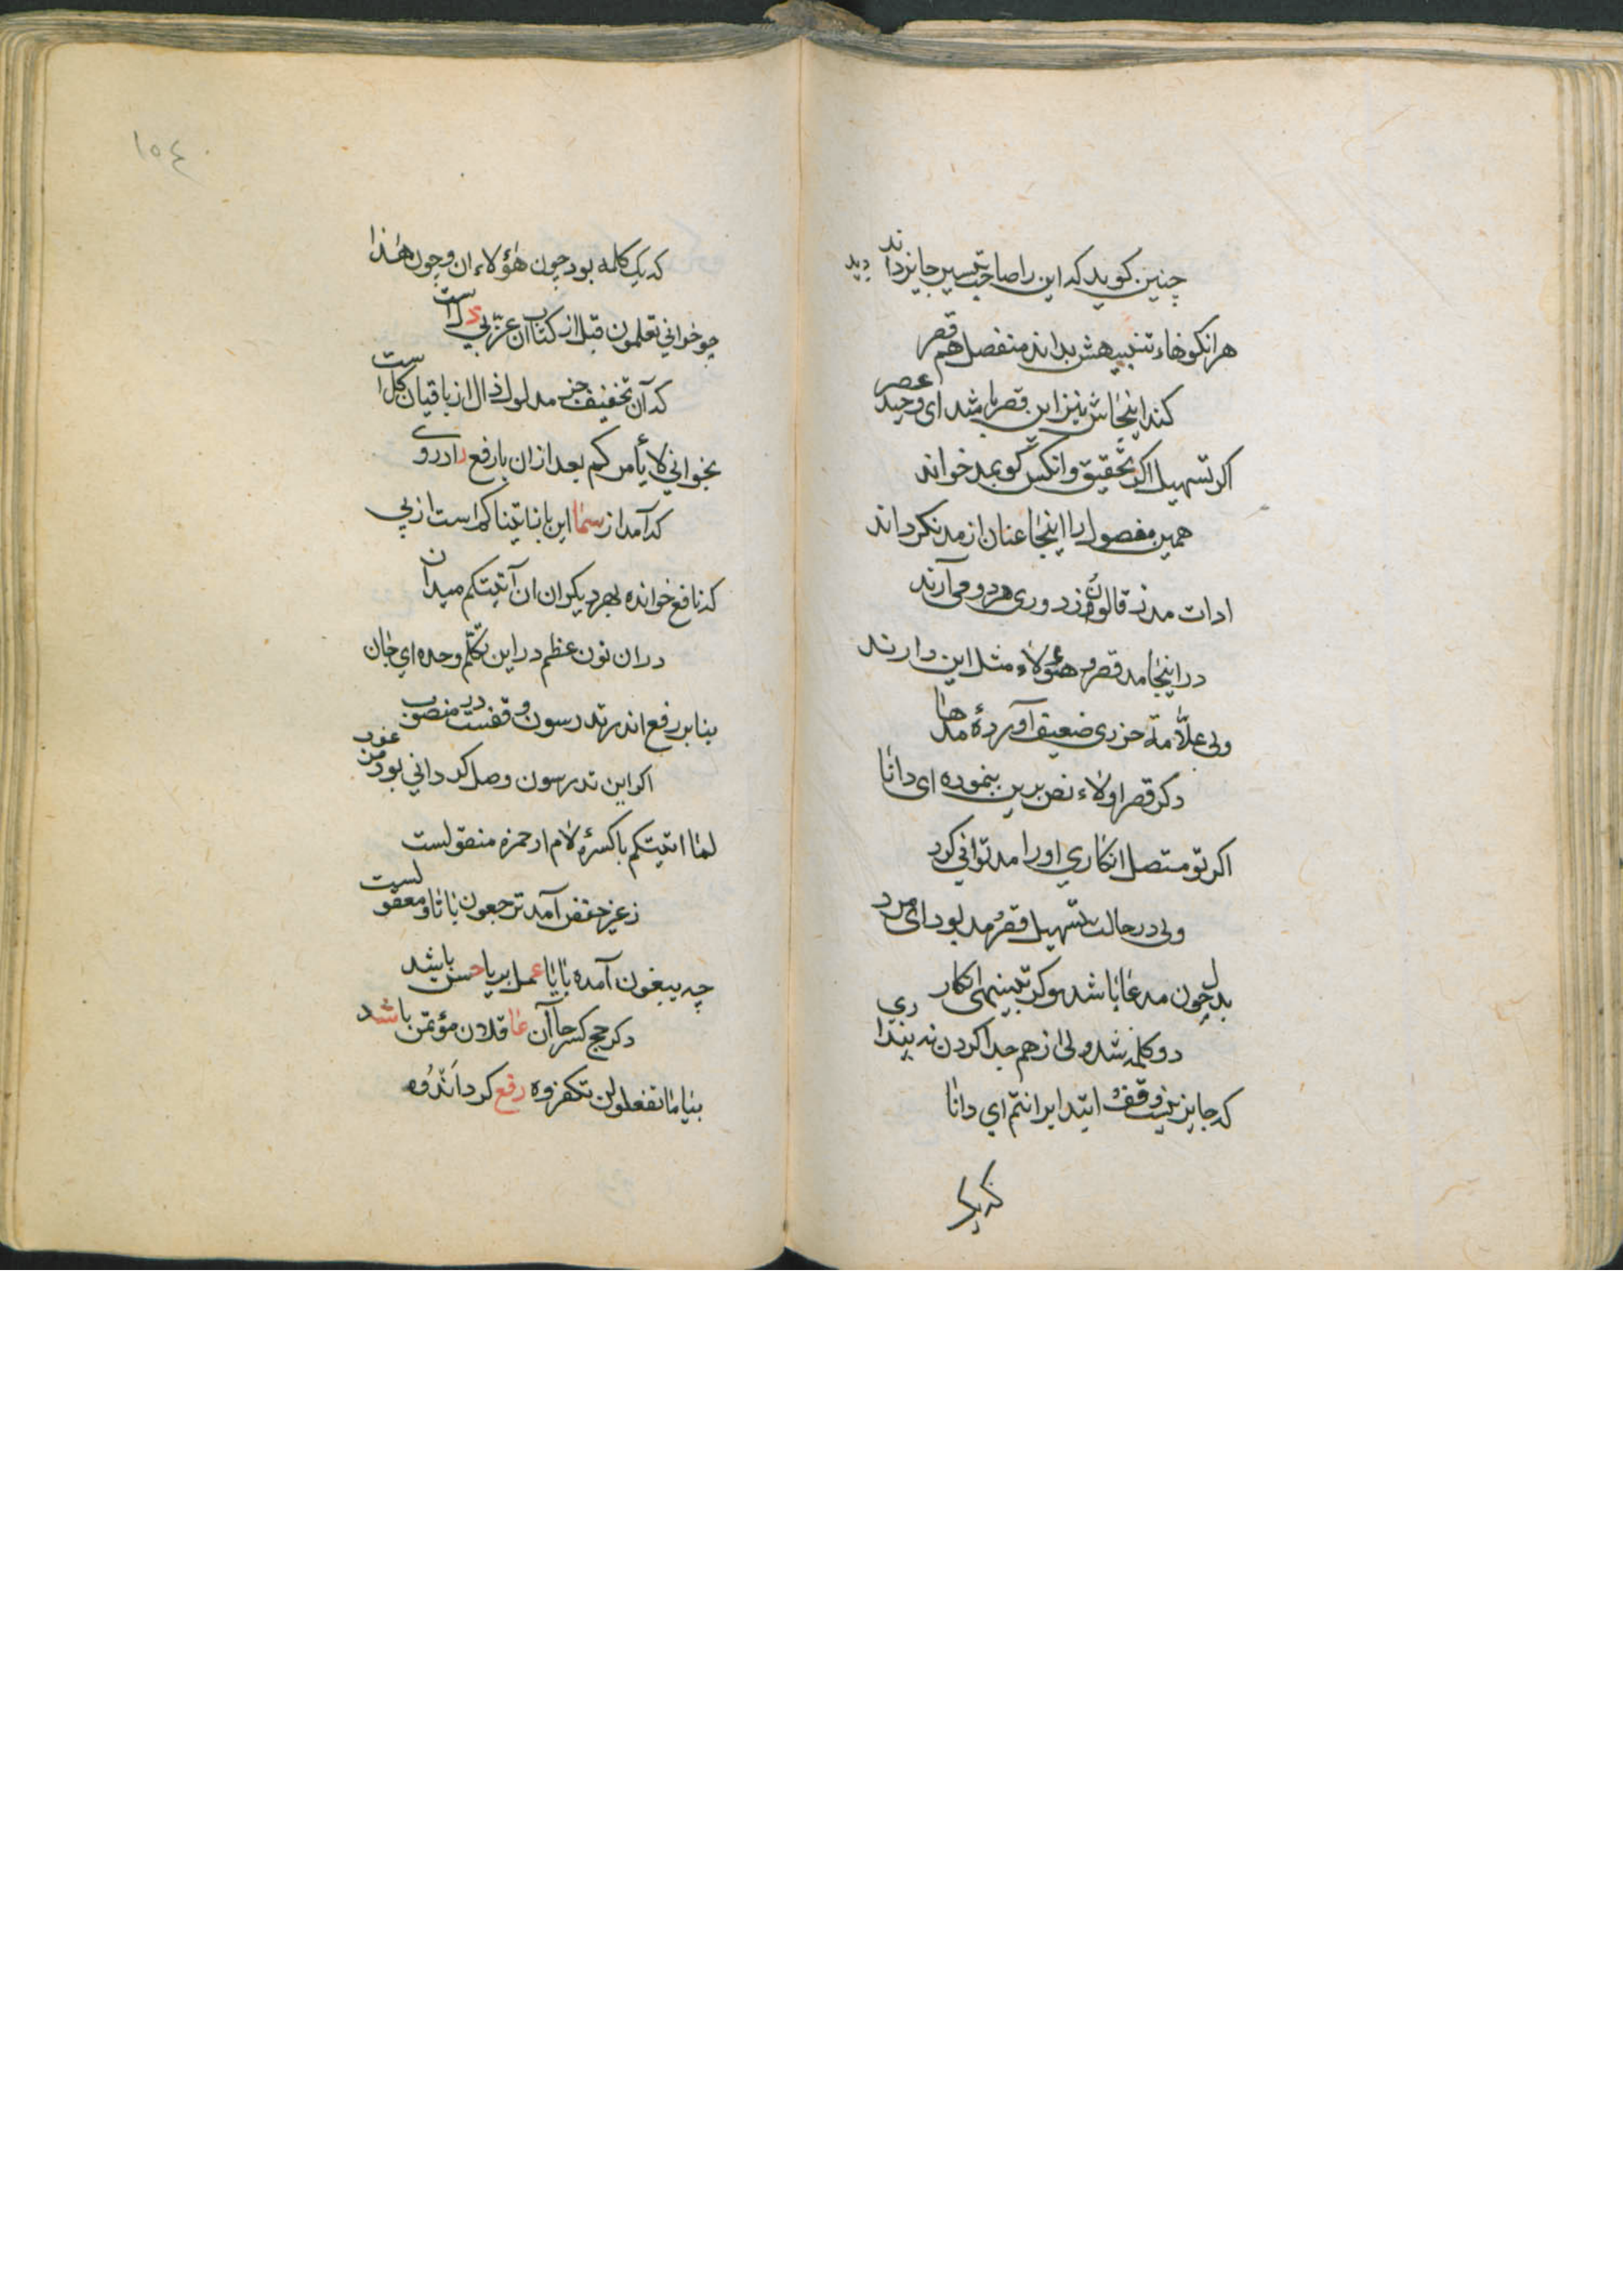 چنین کوید که این را صاحب تیسیر جایز داند دید
هرانکو خاء تنبیهش بداند منفصل هم قصر
کند اینجاش نیز این قصر باشد ای وحید عصر
اکر تسهیل اکر تحقیق وانکس کو بمد خواند
همین مفصول را اینجا عنان از مد نکرداند
ادات مد ز قالون وز دوری هر دو می آرند
در اینجا مد قصر و هؤلاء مثل این دارند
ولی علّامهٔ جزری ضعیف آوردهٔ مد ها
دکر قصر اولاء نص برین بنموده ای دانا
اکر تو متصل انکاری او را مد توانی کرد
ولی در حالت تسهیل قصر و مد بود ای مرد
بدل چون مدعا باشد وکر تنبیهی انکاری
دو کلمه شد ولی از هم جدا کردن نه پنداری
که جایز نیست وقف و ابتدا بر انتم ای دانا
که یک
١٥٤
که یک کلمه بود چون هؤلاء ان وچون هذا
چو خوانی تعلمون قبل از کتاب ان عزّ بی ذل است
که آن تخفیف جز مدلول ذال از باقیان کل است
بخوانی لا یأمرکم بعد ازان با رفع را در وی
که آمد از سما این با نباتینا کم است از پی
که نافع خوانده بهر دیکران ان آتیتکم میدان
دران نون عظم در این تکلم وحده ای جان
بنابر رفع اندر تدرسون وقفست در منصوب
اکر این تدرسون وصل کردانی بود مرغوب
لما اتیتکم با کسرهٔ لام از حمزه منقولست
ز غیر حفص آمد ترجعون با تا و معقولست
چه یبغون آمده با یا عمل بر یا حسن باشد
دکر حج کسر حا آن عاقلان مؤتمن باشد
بنیا ما تفعلوا لن تکفروه رفع کرد اندوه